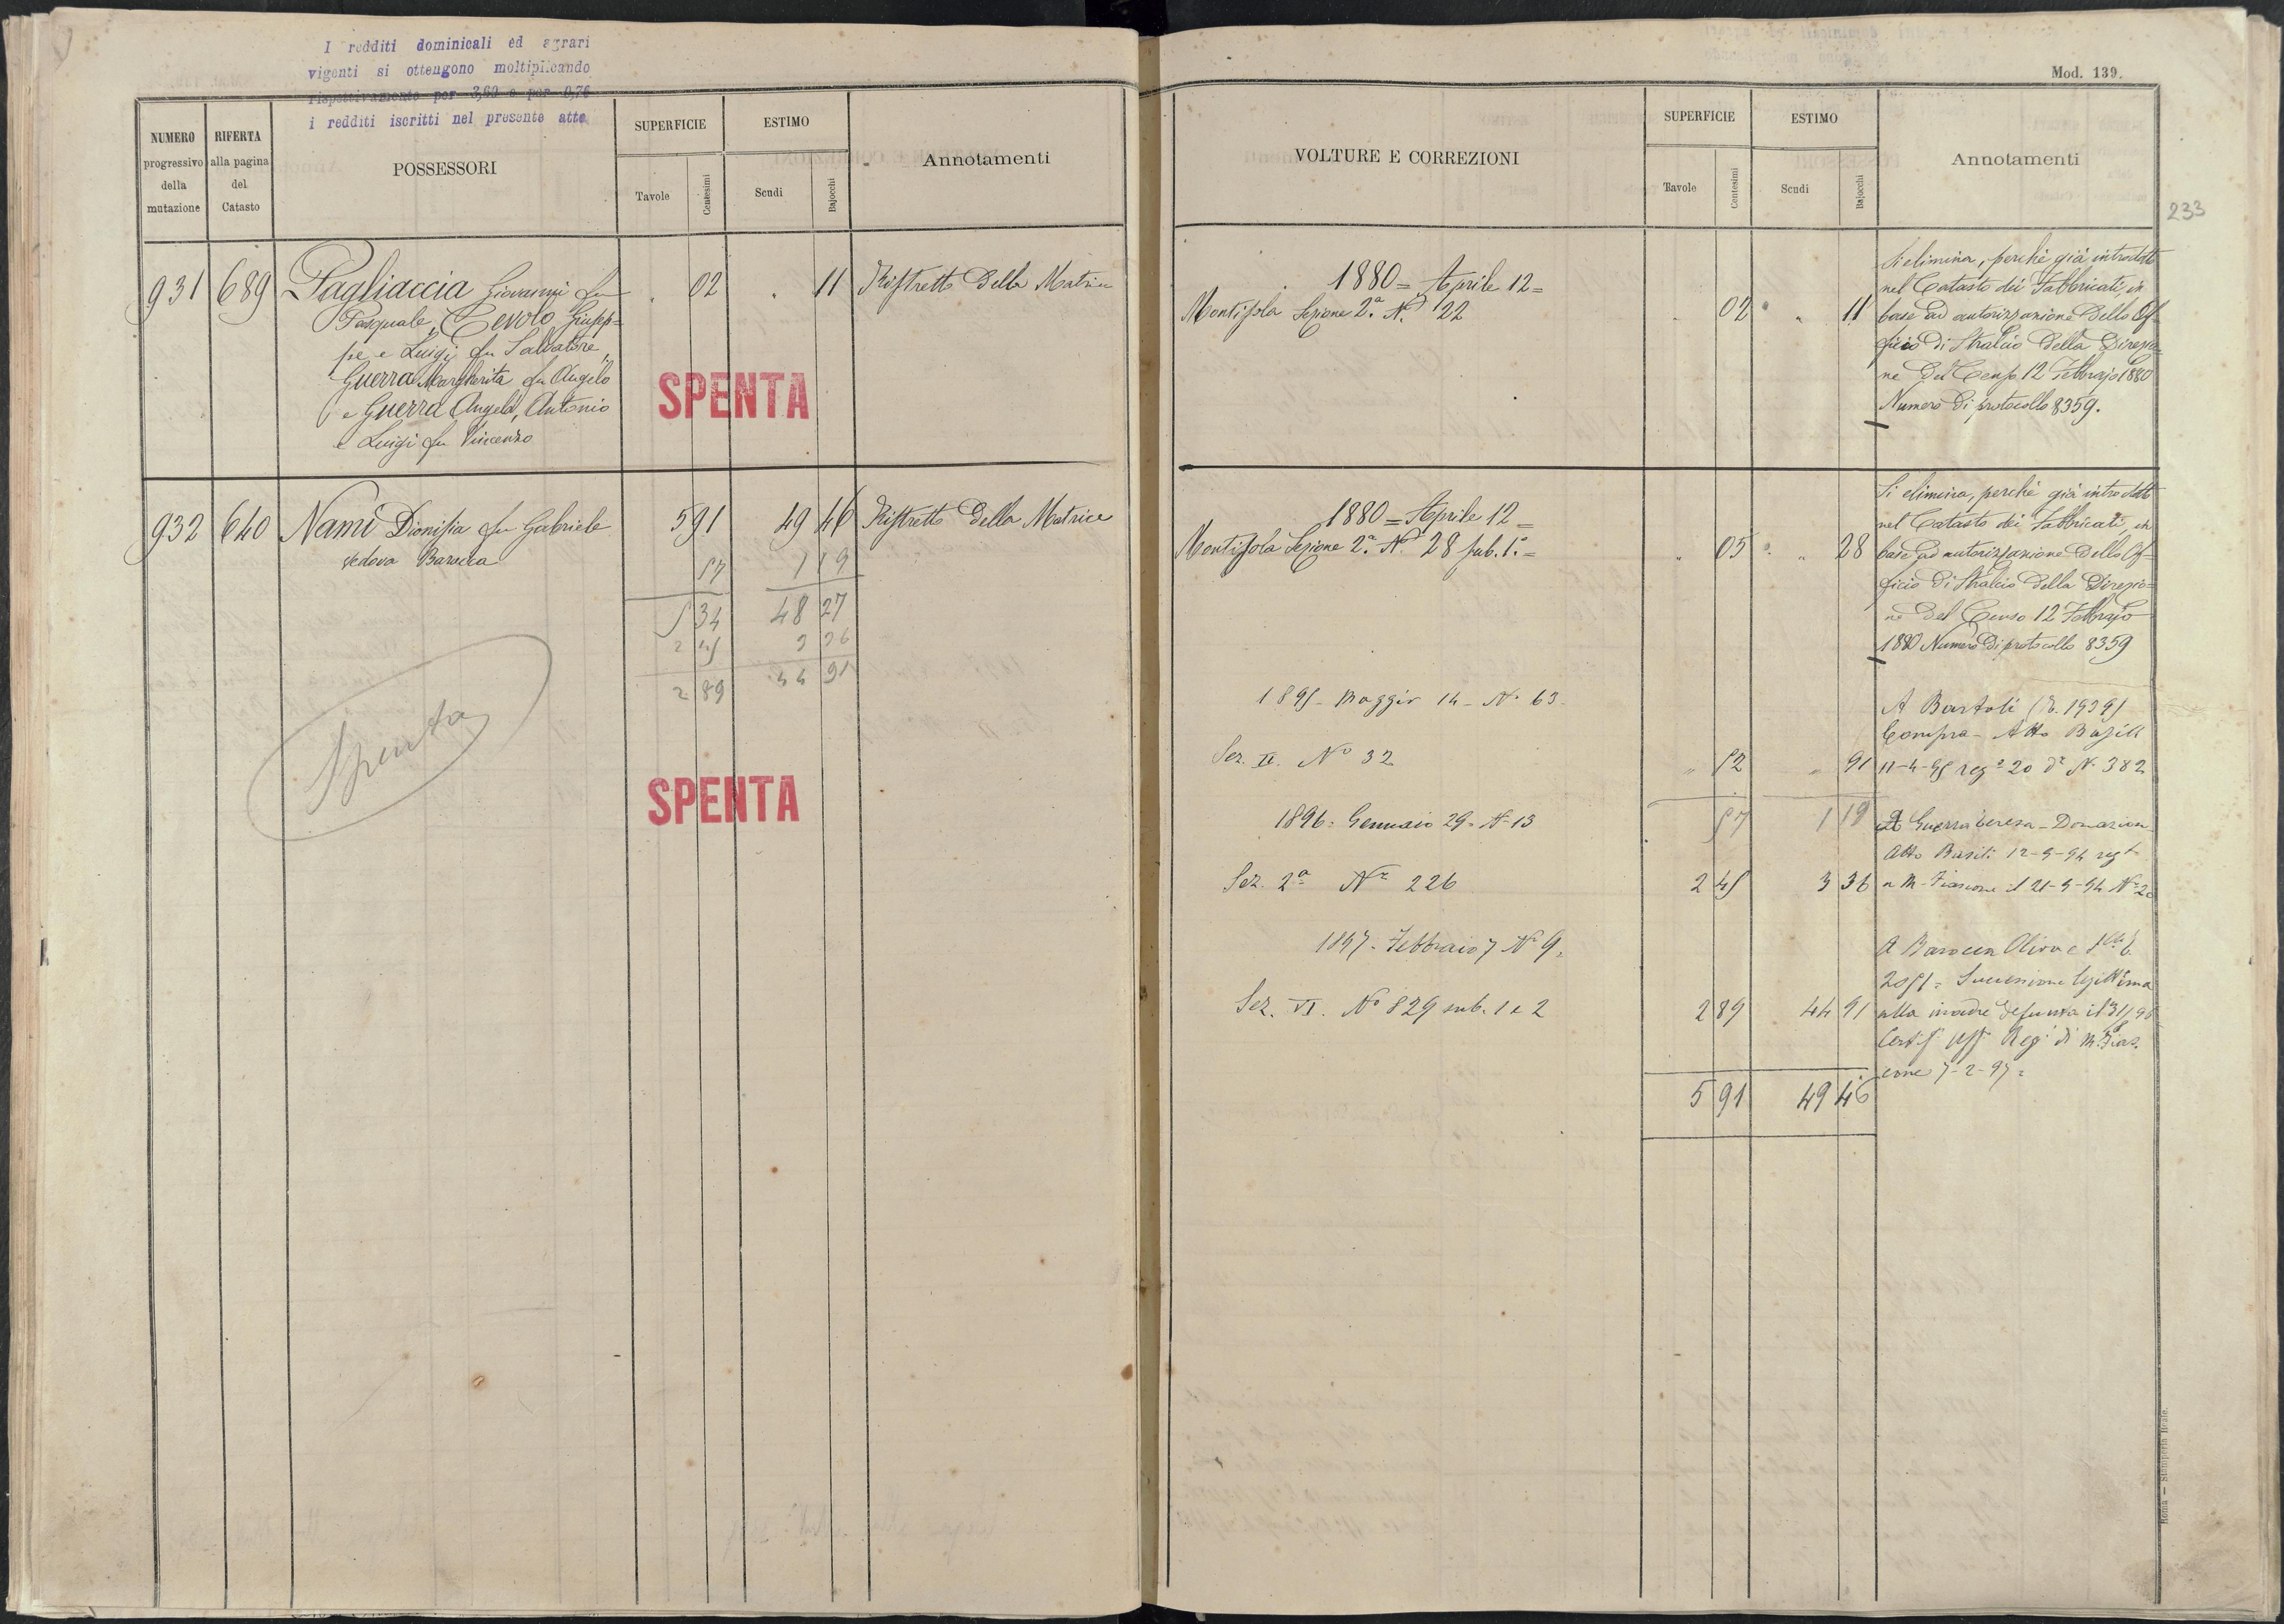 I redditi dominicali ed agrari
vigenti si ottengono moltiplicando
rispettivamente per 3,60 e per 0,76
i redditi iscritti nel presente atto
NUMERO
progressivo
della
mutazione
RIFERTA
alla pagina
del
Catasto
POSSESSORI
SUPERFICIE
Tavole
Centesimi
ESTIMO
Scudi
Bajocchi
Annotamenti
931 689 Pagliaccia Giovanni fu " 02 " 11 Ristretto della Matrice
Pasquale, Cevolo Giusep=
pe e Luigi fu Salvatore,
Guerra Margherita fu Angelo
e Guerra Angelo, Antonio
e Luigi fu Vincenzo
SPENTA
932 640 Nami Dionisia fu Gabriele 5 91 49 46 Ristretto della Matrice
vedova Barocca
57 1 19
5 34 48 27
2 45 3 36
2 89 44 91
Spenta
SPENTA
Mod. 139.
233
VOLTURE E CORREZIONI
SUPERFICIE
Tavole
Centesimi
ESTIMO
Scudi
Bajocchi
Annotamenti
1880 = Aprile 12 =
Montisola Sezione 2.ª N.º 22 " 02 " 11
Si elimina, perchè già introdotto
nel Catasto dei Fabbricati, in
base ad autorizzazione dello Uf=
ficio di Stralcio della Direzio=
ne del Censo 12 Febbrajo 1880
Numero di protocollo 8359.
1880 = Aprile 12 =
Montisola Sezione 2.ª N.º 28 sub. 1.º = " 05 " 28
Si elimina, perchè già introdotto
nel Catasto dei Fabbricati, in
base ad autorizzazione dello Uf=
ficio di Stralcio della Direzio=
ne del Censo 12 Febbrajo
1880 Numero di protocollo 8359
1895 - Maggio 14 - N. 63
A Bartoli
Compra - Atto
Sez. II. Nº 32 " 52 " 91
11-4-95 reg.º 20 dº N. 382
57 1 19
1896 = Gennaio 29 - N. 13
A Guerra Teresa - Donazione
Atto
Sez. 2ª Nº 226 2 45 3 36
1897 - Febbraio 7 Nº 9.
A Barocca Oliva e
Successione legittima
Sez. VI. Nº 829 sub. 1 e 2 2 89 44 91
alla madre defunta il
7-2-97 =
5 91 49 46
Roma — Stamperia Reale.